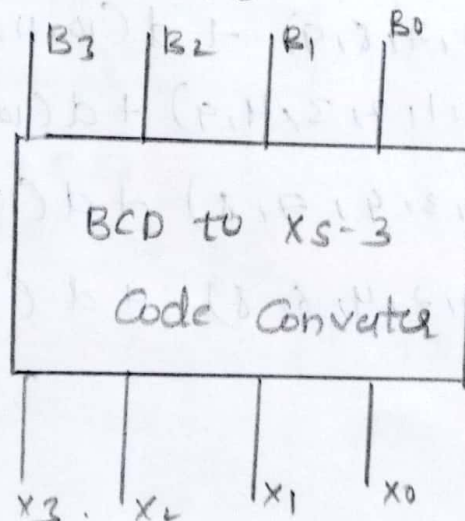 B3 B2 B1 B0
BCD to XS-3
Code Converter
X3. X2 X1 X0